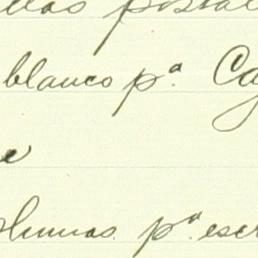 postal
blanco pª. Ca
e
plumas. pª. escr